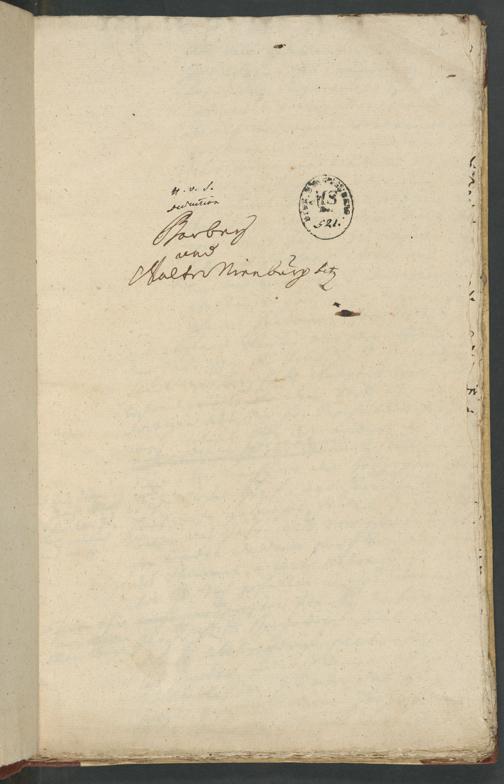 deduction
Barby
und
Walter Nienburg betr
MS
521.
2